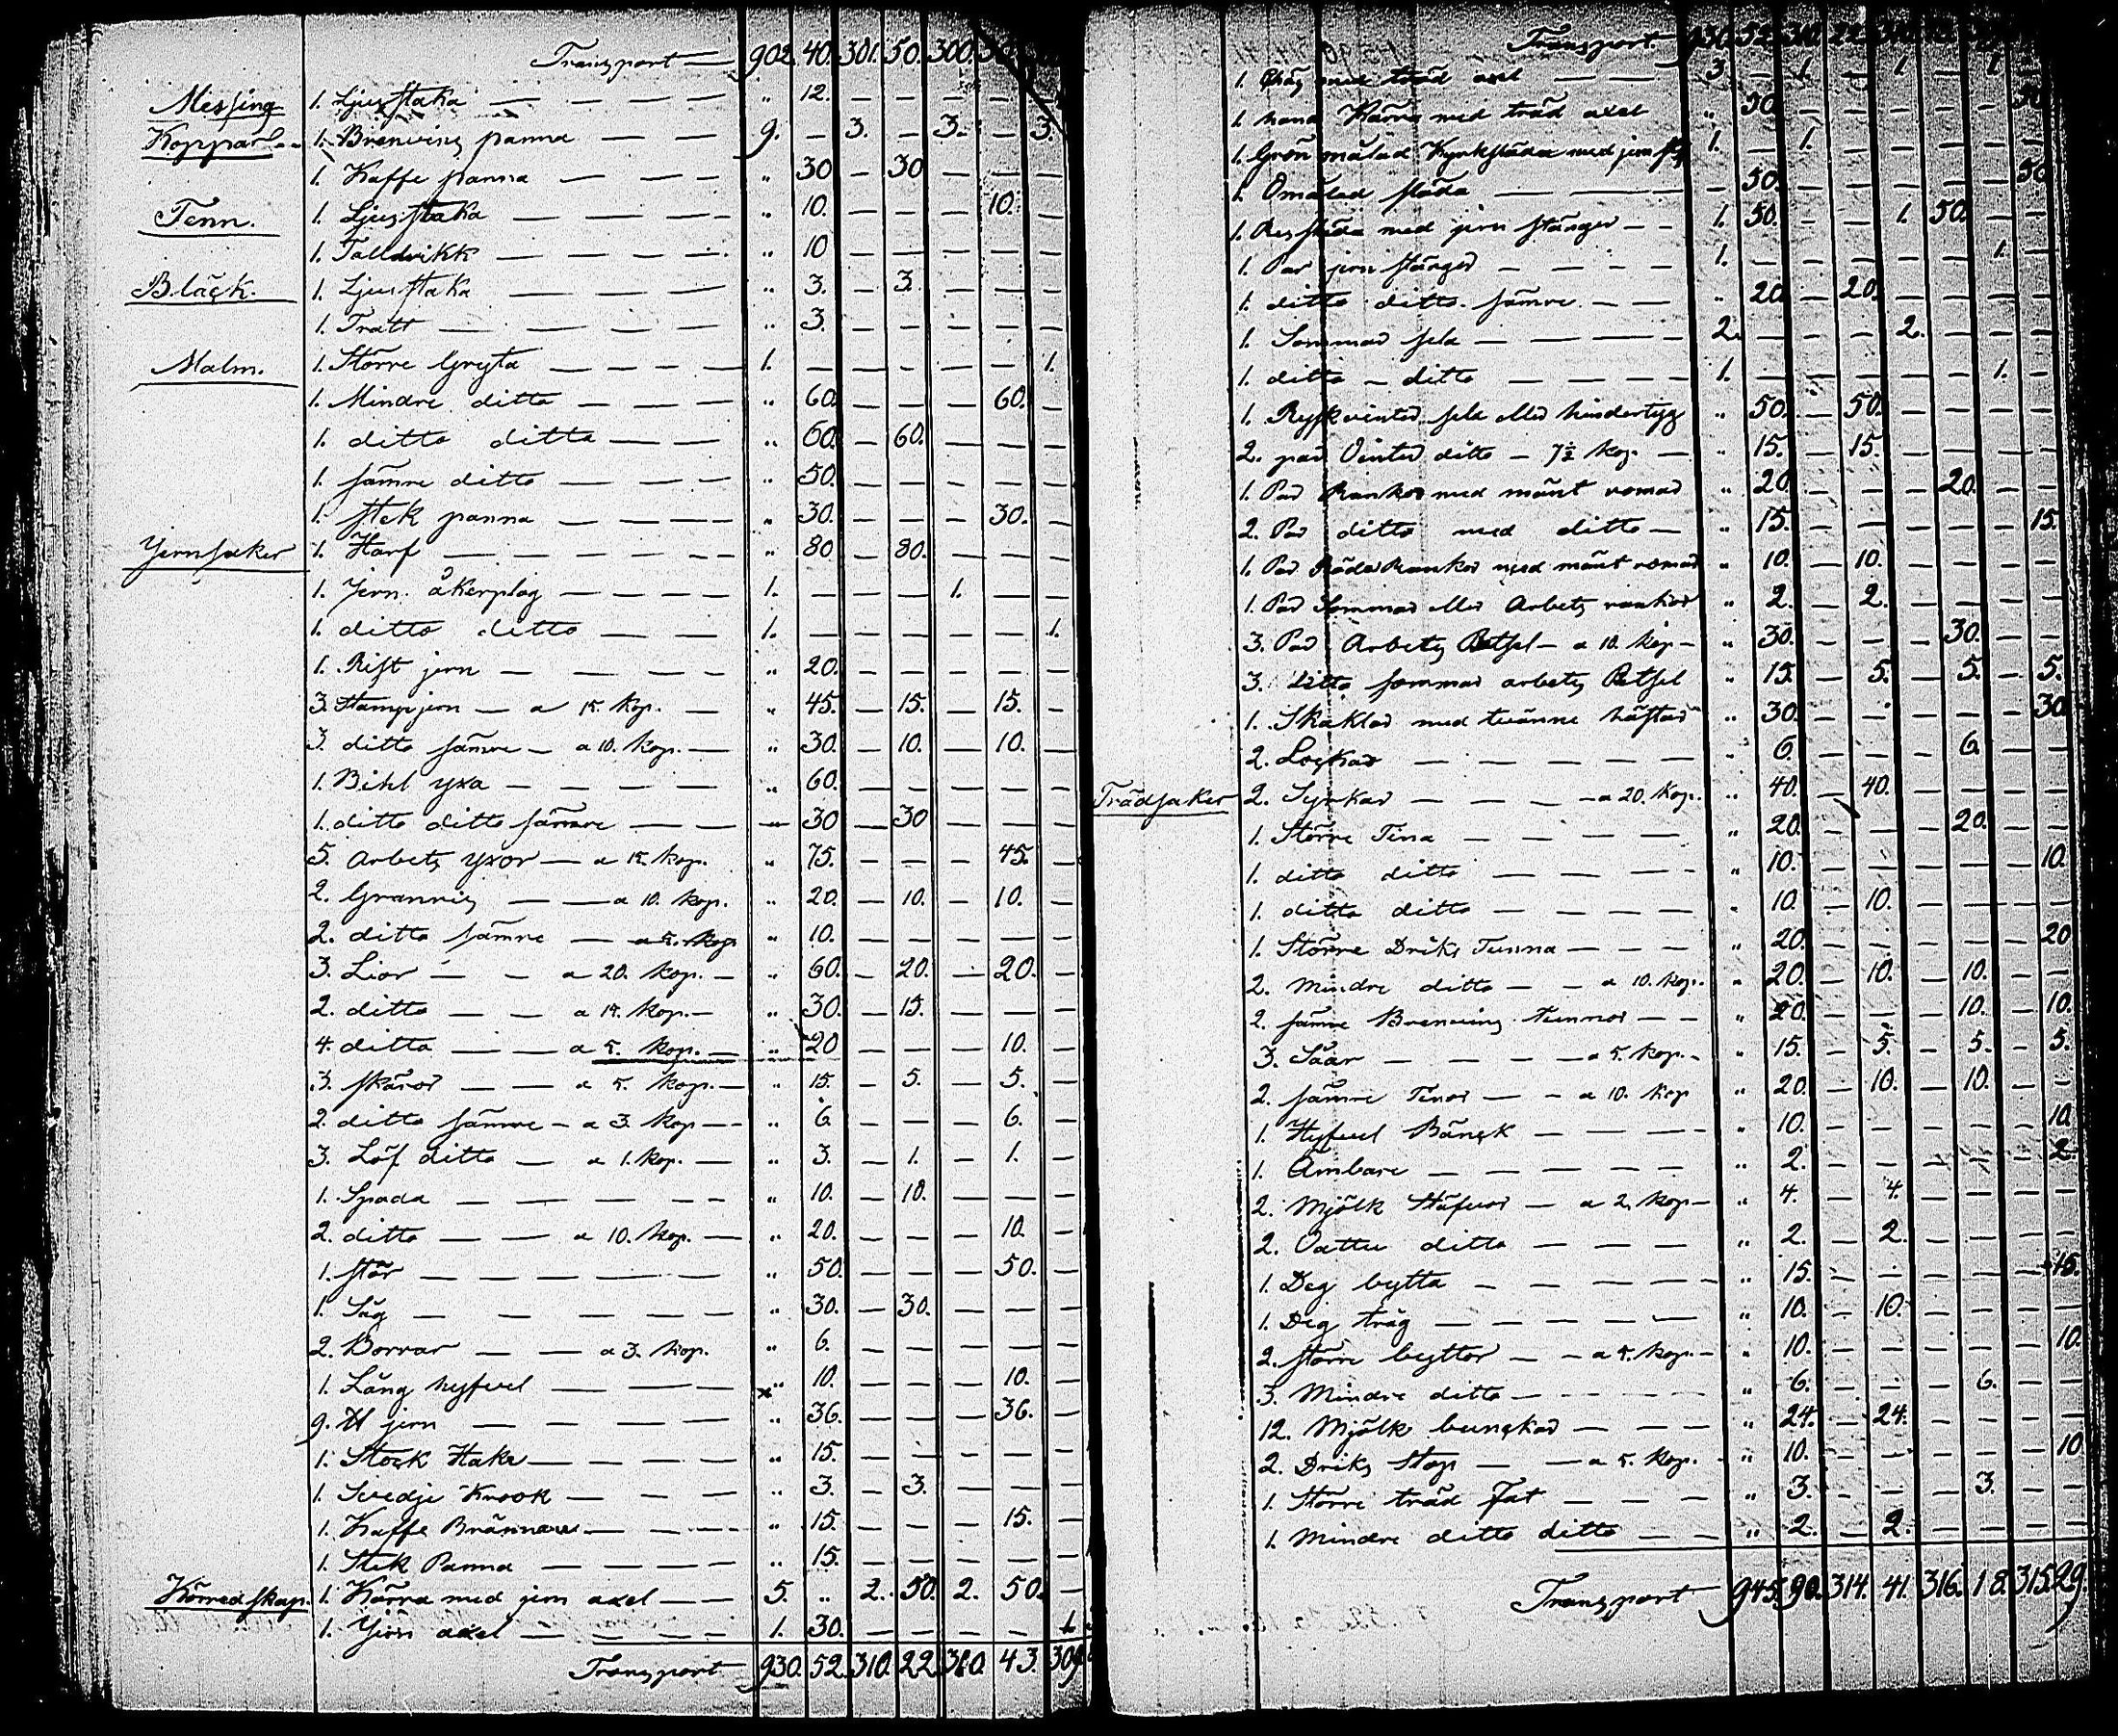 Transport — 902. 40. 301. 50. 300.
Messing 1. Ljusstaka — — — — „ 12. — — — —
Koppar 1. Brenvins panna — — 9. — 3. — 3. — 3.
1. Kaffe panna — — — „ 30 — 30 — — —
Tenn. 1. Ljusstaka — — — — „ 10. — — — 10. —
1. Talldrikk — — — — „ 10 — — — — —
Bläck. 1. Ljusstaka — — — — „ 3. — 3. — — —
1. Tratt — — — — — „ 3. — — — — —
Malm. 1. Större Gryta — — — — 1. — — — — — 1.
1. Mindre ditto — — — „ 60. — — — 60. —
1. ditto ditto — — „ 60. — 60. — — —
1. sämre ditto — — — „ 50. — — — — —
1. stek panna — — — — „ 30. — — — 30. —
Jernsaker 1. Harf — — — — — „ 80 — 80. — — —
1. Jern åkerplog — — — — 1. — — — 1. — —
1. ditto ditto — — 1. — — — — — 1.
1. Rist jern — — — — „ 20. — — — — —
3. Stampjern — a 15. kop. — „ 45. — 15. — 15. —
3. ditto sämre — a 10. kop. — „ 30. — 10. — 10. —
1. Bihl yxa — — — — „ 60. — — — — —
1. ditto ditto sämre — — „ 30 — 30 — — —
5. Arbets yxor — a 15. kop. „ 75. — — — 45. —
2. — — a 10. kop. „ 20. — 10. — 10. —
2. ditto sämre — a 5. kop „ 10. — — — — —
3. Liar — — a 20. kop. — „ 60. — 20. — 20. —
2. ditto — — a 15. kop. — „ 30. — 15. — — —
4. ditto — — a 5. kop. — „ 20 — — — 10. —
3. skäror — — a 5. kop. — „ 15. — 5. — 5. —
2. ditto sämre — a 3. kop — „ 6. — — — 6. —
3. Löf ditto — a 1. kop. — „ 3. — 1. — 1. —
1. Spada — — — — „ 10. — 10. — — —
2. ditto — — a 10. kop. — „ 20. — — — 10. —
1. stör — — — — — „ 50. — — — 50. —
1. Såg — — — — — „ 30. — 30. — — —
2. Borrar — — a 3. kop. „ 6. — — — — —
1. Lång hyfvel — — — „ 10. — — — 10. —
9. jern — — — — „ 36. — — — 36. —
1. Stock Hake — — — — „ 15. — — — — —
1. Svedje Krook — — — „ 3. — 3. — — —
1. Kaffe Brännare — — — „ 15. — — — 15. —
1. Stek Panna — — — — „ 15. — — — — —
Köredskap. 1. Kärra med jern axel — — 5. „ 2. 50. 2. 50. —
1. Jern axel — — — — 1. 30. — — — — 1.
Transport 930. 52. 310. 22. 43. 309.
Transport 930. 52.
1. med träd axel — — 3 — 1. — 1. — 1. —
1. hand Kärra med träd axel „ 50. — — — — — 50
1. Grön målad Kyrksläda med jern 1. — 1. — — — —
1. Omålad släda — — — — 50. — — — — — 50.
1. Res släda med jern stänger — — 1. 50. — — 1. 50. — —
1. Par jern stänger — — — — 1. — — — — — 1. —
1. ditto ditto sämre — — „ 20. — 20. — — — —
1. Sommar sela — — — — 2. — — — 2. — — —
1. ditto — ditto — — — — 1. — — — — — 1. —
1. vinter sela eller hindertyg „ 50. — 50. — — — —
2. par Vinter ditto — 7½ kop. — „ 15. — 15. — — — —
1. Par Rankor med mänt romar „ 20. — — — 20. — —
2. Par ditto med ditto — „ 15. — — — — — 15.
1. Par Röda Rankor med mänt romar „ 10. — 10. — — — —
1. Par Sommar eller Arbets rankor „ 2. — 2. — — — —
3. Par Arbets Betsel — a 10. kop — „ 30. — — — 30. — —
3. ditto sommar arbets Betsel „ 15. — 5. — 5. — 5.
1. Skaklar med tvänne „ 30. — — — — — 30
2. — — — — — — „ 6. — — — 6 — —
Trädsaker 2. — — — — a 20. kop. „ 40. — 40. — — — —
1. Större Tina — — — — „ 20. — — — 20. — —
1. ditto ditto — — — — „ 10. — — — — — 10.
1. ditto ditto — — — — „ 10. — 10. — — — —
1. Större Driks Tunna — — — „ 20. — — — — — 20
2. Mindre ditto — — a 10. kop. „ 20. — 10. — 10. — —
2. sämre Brenvins tunnor — — „ 20. — — — 10. — 10.
3. Såar — — — — a 5. kop. — „ 15. — 5. — 5. — 5.
2. sämre Tinor — — a 10. kop „ 20. — 10. — 10. — —
1. Hyfvel Bänck — — — — „ 10. — — — — — 10.
1. Ämbare — — — — „ 2. — — — — — 2.
2. Mjölk Stäfvor — a 2. kop — „ 4. — 4. — — — —
2. Vattu ditto — — — „ 2. — 2. — — — —
1. Deg bytta — — — — — „ 15. — — — — — 15.
1. Deg tråg — — — — — „ 10. — 10. — — — —
2. större byttor — — a 5. kop. — „ 10. — — — — — 10.
3. Mindre ditto — — — — — „ 6. — — — 6. — —
12. Mjölk bunckar — — — „ 24. — 24. — — — —
2. Driks Stop — — a 5. kop. — „ 10. — — — — — 10
1. Större träd Fat — — — „ 3. — — — 3. — —
1. Mindre ditto ditto — — „ 2. — 2. — — — —
Transport 945. 90. 314. 41. 316. 18. 315. 29.